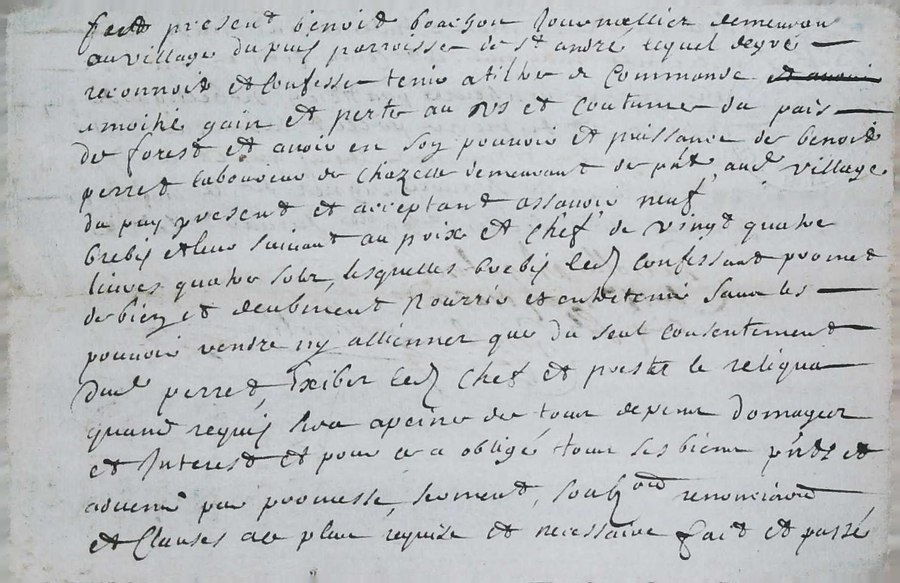 fut present benoit bouchon Journallier demeurant
au village du puy parroisse de st andré lequel de gré
reconnoit et confesse tenir a tiltre de Commande et avoir
a moitié gain et perte au us et coutume du païs
de forest et avoir en son pouvoir et puissance de benoit
perret laboureur de Chazelle demeurant de pnt aud village
du puy present et acceptant assavoir neuf
brebis et leur suivant au prix et chef de vingt quatre
livres quatre sols, lesquelles brebis led confessant promet
de bien et deubement nourrir et entretenir sans les
pouvoir vendre ny allienner que du seul consentement
dud perret, Exiber led Chef et prester le reliqua
quand requis sera a peine de tous depens domages
et Interest et pour ce a obligé tous ses biens pnts et
advenir par promesse, serment, soub on renonciaon
et Clauses au plus requise et necessaire fait et passé